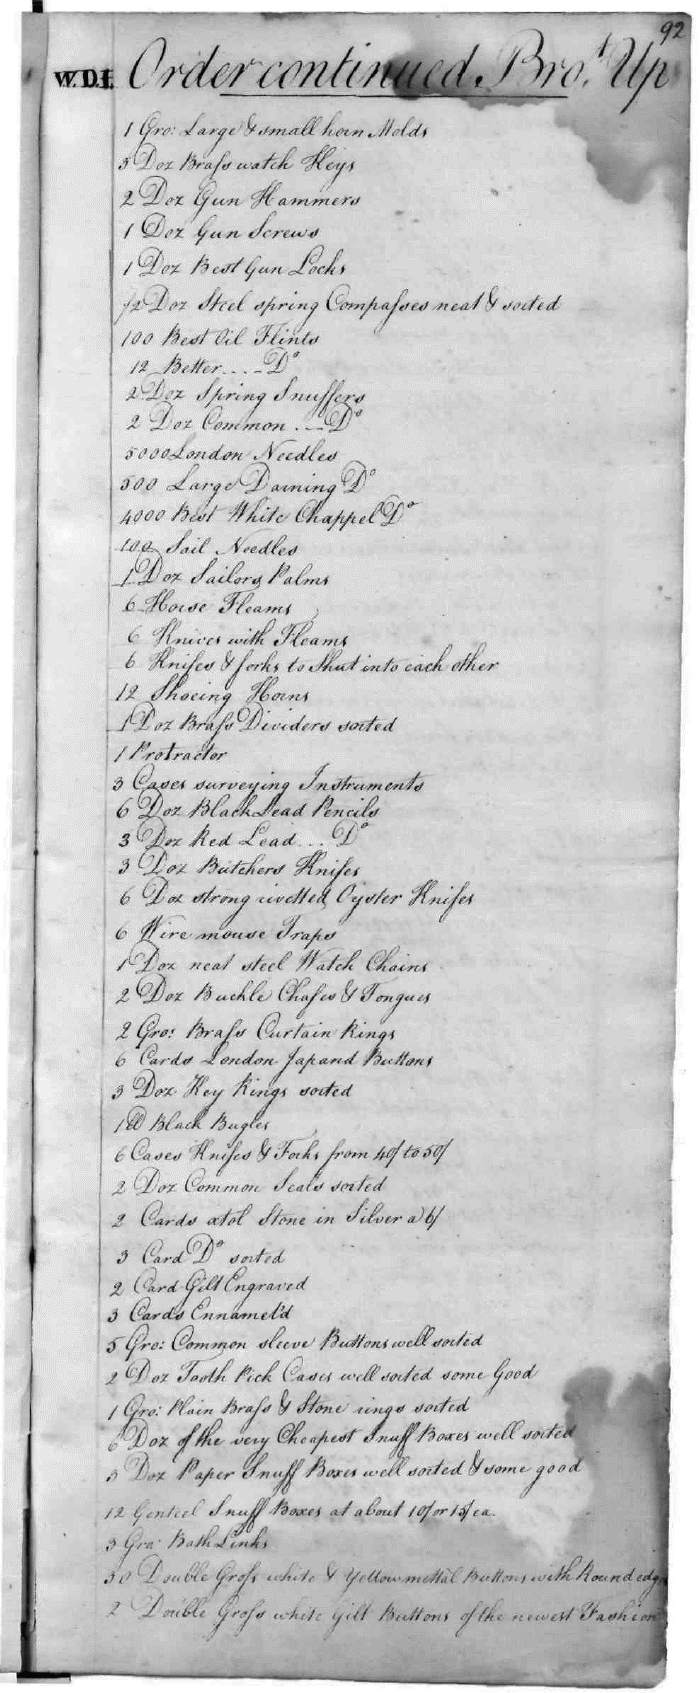 92
W.D.I. Order continued Bro.t Up
1 Gro: Large & small horn Molds
3 Doz Brass watch Keys
2 Doz Gun Hammers
1 Doz Gun Screws
1 Doz Best Gun Locks
1/2 Doz Steel spring Compasses neat & sorted
100 Best Oil Flints
12 Better .... Do
2 Doz Spring Snuffers
2 Doz Common ... Do
5000 London Needles
500 Large Darning Do
4000 Best White Chappel Do
100 Sail Needles
1 Doz Sailors Palms
6 Horse Fleams
6 Knives with Fleams
6 Knifes & forks to Shut into each other
12 Shoeing Horns
1 Doz Brass Dividers sorted
1 Protractor
3 Cases surveying Instruments
6 Doz Black Lead Pencils
3 Doz Red Lead ... Do
3 Doz Butchers Knifes
6 Doz strong rivetted Oyster Knifes
6 Wire mouse Traps
1 Doz neat steel Watch Chains
2 Doz Buckle Chafes & Tongues
2 Gro: Brass Curtain Rings
6 Cards London Japand Buttons
3 Doz Key Rings sorted
1 lb Black Bugles
6 Cases Knifes & Forks from 40/ to 50/
2 Doz Common Seals sorted
2 Cards atol Stone in Silver a 6/
3 Card Do sorted
2 Card Gilt Engraved
3 Cards Ennamel'd
5 Gro: Common sleeve Buttons well sorted
2 Doz Tooth Pick Cases well sorted some Good
1 Gro: Plain Brass & Stone rings sorted
6 Doz of the very Cheapest Snuff Boxes well sorted
3 Doz Paper Snuff Boxes well sorted & some good
12 Genteel Snuff Boxes at about 10/ or 15/ ea.
3 Gro: Bath Links
30 Double Gross white & Yellow mettal Buttons with Round edg
2 Double Gross white Gilt Buttons of the newest Fashion